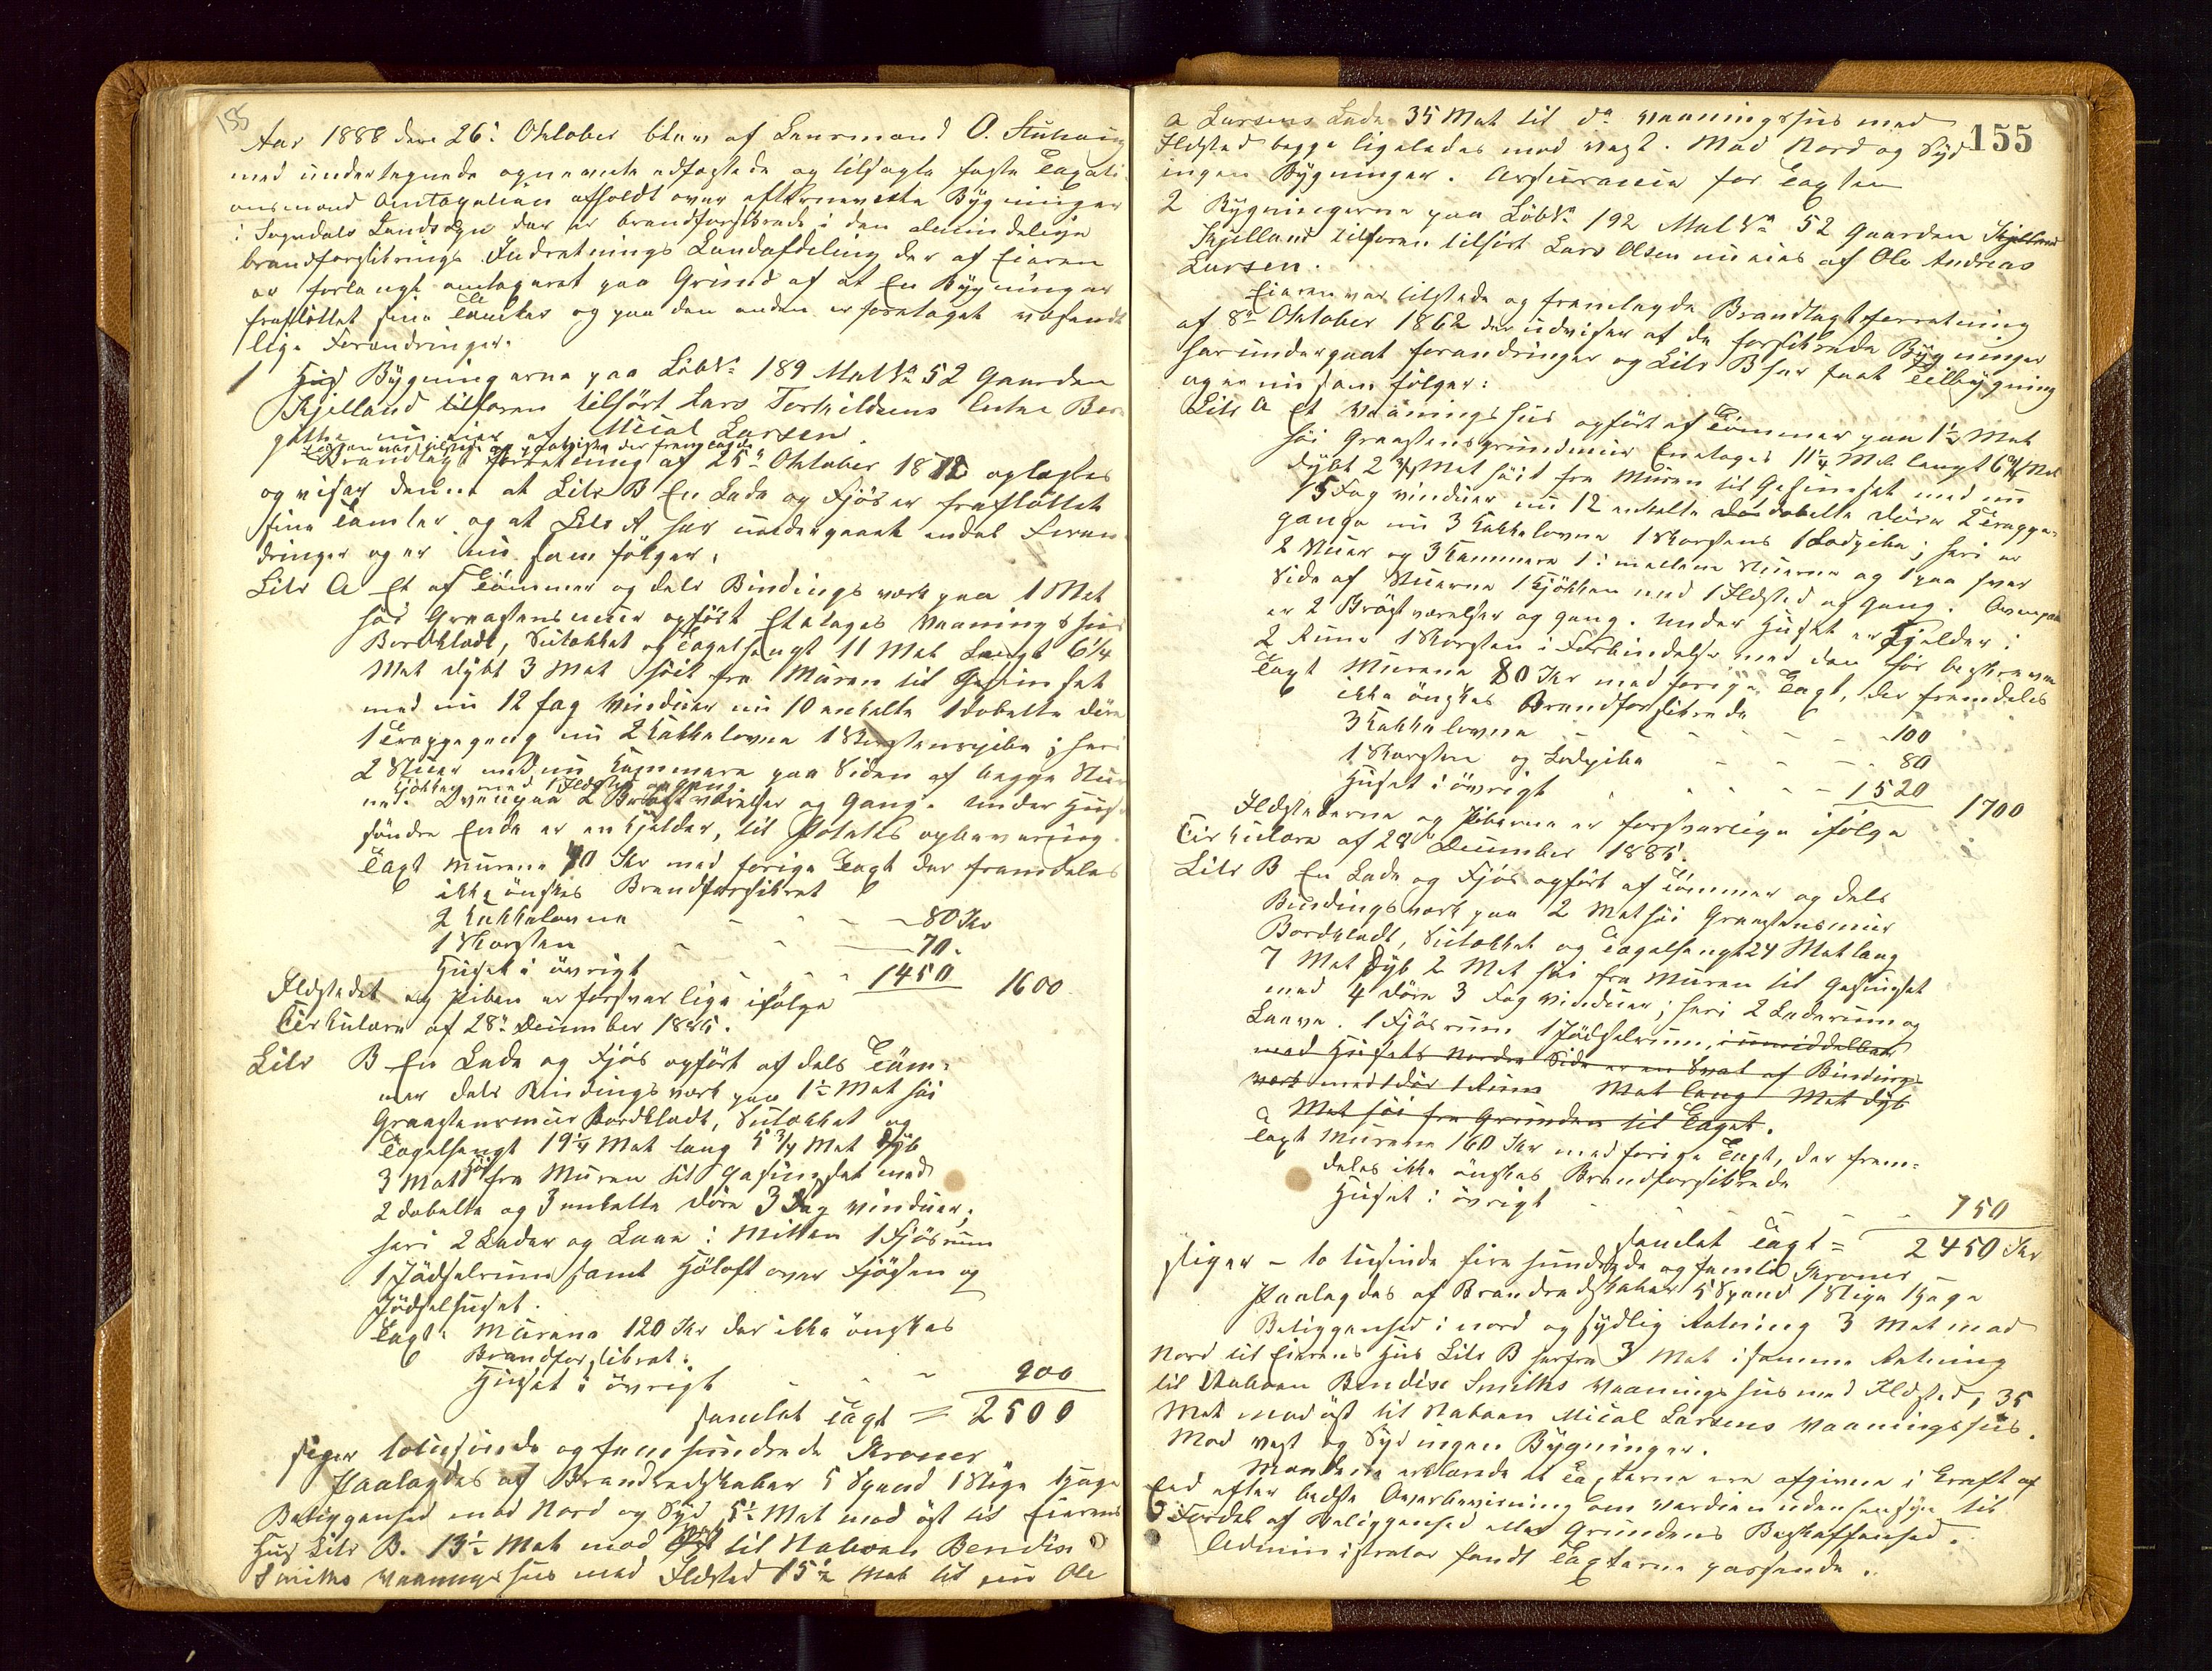 155
Aar 1888 den 26: Oktober blev af Lensmand O. Stuhaug
med undertegnede opnevnte edfæstede og tilsagte faste Taxati
onsmænd Omtaxation afholdt over efternevnte Bygninger
i Sogndals Landsogn der er brandforsikrede i den almindelige
brandforsikrings Indretnings Landafdeling der af Eieren
er forlangt omtaxeret paa Grund af at En Bygning er
fraflöttet sine Tomter og paa den anden er foretaget vesent
lige Forandringer.
1 Bygningerne paa Löb No 189 Mat No 52 Gaarden
Skjelland tilforen tilfört Lars Torkildsens Enke Ber
githa nu eies af Micál Larsen.
Eieren var tilstede og paaviste der fremlagde
Brandtaxt forretning af 25: Oktober 18 oplæstes
og viser denne at Litr B En Lade og Fjös er fraflöttet
sine Tomter og at Litr A har undergaaet endel Foran
dringer og er nu som fölger:
Litr A Et af Tömmer og dels Bindingsverk paa 1 Met
höi Graastensmuur opfört Etetages Vaaningshus
Bordkledt, Sutækket og Tagelhengt 11 Met Langt 6 1/4
Met dybt 3 Met höit fra Muren til Gesimset
med nu 12 fag Vinduer nu 10 enkelte 1 dobelte döre
1 Trappegang nu 2 Kakkelovne 1 Skorstenspibe; heri
2 Stuer med nu Kammere paa Siden af begge Stu
Kjökken med 1 Ildsted og Gang.
ene. Ovenpaa 2 Brögstværelser og Gang. Under Huse
söndre Ende er en Kjelder, til Potetes opbevaring.
Taxt Murene 70 Kr med forige Taxt der fremdeles
ikke önskes Brandforsikret
2 Kakkelovne - - - 80 Kr
1 Skorsten - - 70.
Huset i övrigt - - - 1450 1600
Ildstedet og Piben er forsvarlige ifölge
Cirkulære af 28: December 1885.
Litr B En Lade og Fjös opfört af dels Töm=
mer dels Bindingsverk paa 1 1/2 Met höi
Graastensmuur Bordkledt, Sutækket og
Tagelhengt 19 1/4 Met lang 5 3/4 Met dyb
3 Met höi fra Muren til Gesimset med
2 dobelte og 3 enkelte döre 3 Fag Vinduer,
heri 2 Lader og Laae i Mitten 1 Fjösrum
1 Jödselrum samt Höloft over Fjösen og
Jödselhuset.
Taxt: Murene 120 Kr der ikke önskes
Brandforsikret.
Huset i övrigt - - - 900
samlet Taxt = 2500
siger totusinde og femhundrede Kroner
Paalagdes af Brandredskaber 5 Spand 1 Stige 1 Hage
Beliggenhed mod Nord og Syd, 5 1/2 Met mod öst til Eierens
Hus Litr B. 13 1/2 Met mod til Naboen Bendix
Smiths Vaaningshus med Ildsted 15 1/2 Met til nu Ole
155
A Larsens Lade 35 Met til do Vaaningshus med
Ildsted begge ligeledes mod Vest. Mod Nord og Syd
ingen Bygninger. Assurancen for Taxten
2 Bygningerne paa Löb No 192 Mat No 52 Gaarden Skjelland
Skjelland tilforen tilfört Lars Olsen nu eies af Ole Andreas
Larsen.
Eieren var tilstede og fremlagde Brandtaxtforretning
af 8de Oktober 1862 der udviser at de forsikrede Bygninger
har undergaaet forandringer og Litr B har faaet Tilbygning
og er nu som fölger:
Litr A Et Vaaningshus opfört af Tömmer paa 1 1/2 Met
höi Graastensgrundmuur Enetages 11 1/4 Met langt 6 3/4 Met
dybt 2 3/4 Met höit fra Muren til Gesimset med nu
15 Fag Vinduer nu 12 enkelte dobelte döre 2 Trappe
gange nu 3 Kakkelovne 1 Skorstens 1 Ladpibe; heri er
2 Stuer og 3 Kammere 1 i mellem Stuerne og 1 paa hver
Side af Stuerne 1 Kjökken med 1 Ildsted og Gang. Ovenpaa
er 2 Brögstværelser og Gang. Under Huset er Kjelder i
2 Rum 1 Skorsten i Forbindelse med den för beskrevne
Taxt Murene 80 Kr med forige Taxt, der fremdeles
ikke önskes Brandforsikrede
3 Kakkelovne - - - - - 100
1 Skorsten og Ladpibe - - - 80
Huset i övrigt - - - - 1520 1700
Ildstederne og Piberne er forsvarlige ifölge
Cirkulære af 28 December 1885.
Litr B En Lade og Fjös opfört af Tömmer og dels
Bindingsverk paa 2 Met höi Graastensmuur
Bordkledt, Sutækket og Tagelhengt 24 Met lang
7 Met Dyb, 2 Met höi fra Muren til Gesimset
med 4 döre 3 Fag Vinduer; heri 2 Laderum og
Laave. 1 Fjösrum 1 Jödselrum, iumiddelbar
med Husets Nordre Side er en Sval af Bindings
verk med 1 dör 1 Rum Met lang Met dyb
Met höi fra Grunden til Taget.
Taxt Murene 160 Kr med forige Taxt, der frem=
deles ikke önskes Brandforsikrede
Huset i övrigt - - - 750
samlet Taxt = 2450 Kr
siger - to tusinde fire hundrede og femti Kroner
Paalagdes af Brandredskaber 5 Spand 1 Stige 1 Hage
Beliggenhed i nord og sydlig Retning 3 Met mod
Nord til Eierens Hus Litr B herfra 3 Met i samme Retning
til Naboen Bendix Smiths Vaaningshus med Ildsted, 35
Met mod öst til Naboen Micál Larsens Vaaningshus.
Mod Vest og Syd ingen Bygninger.
Mændene erklærede at Taxterne ere afgivne i Kraft af
Eed efter bedste Overbevisning om Værdien uden hensyn til
Fordel af Beliggenhed eller Grundens Beskaffenhed.
Administrator fandt Taxterne passende.